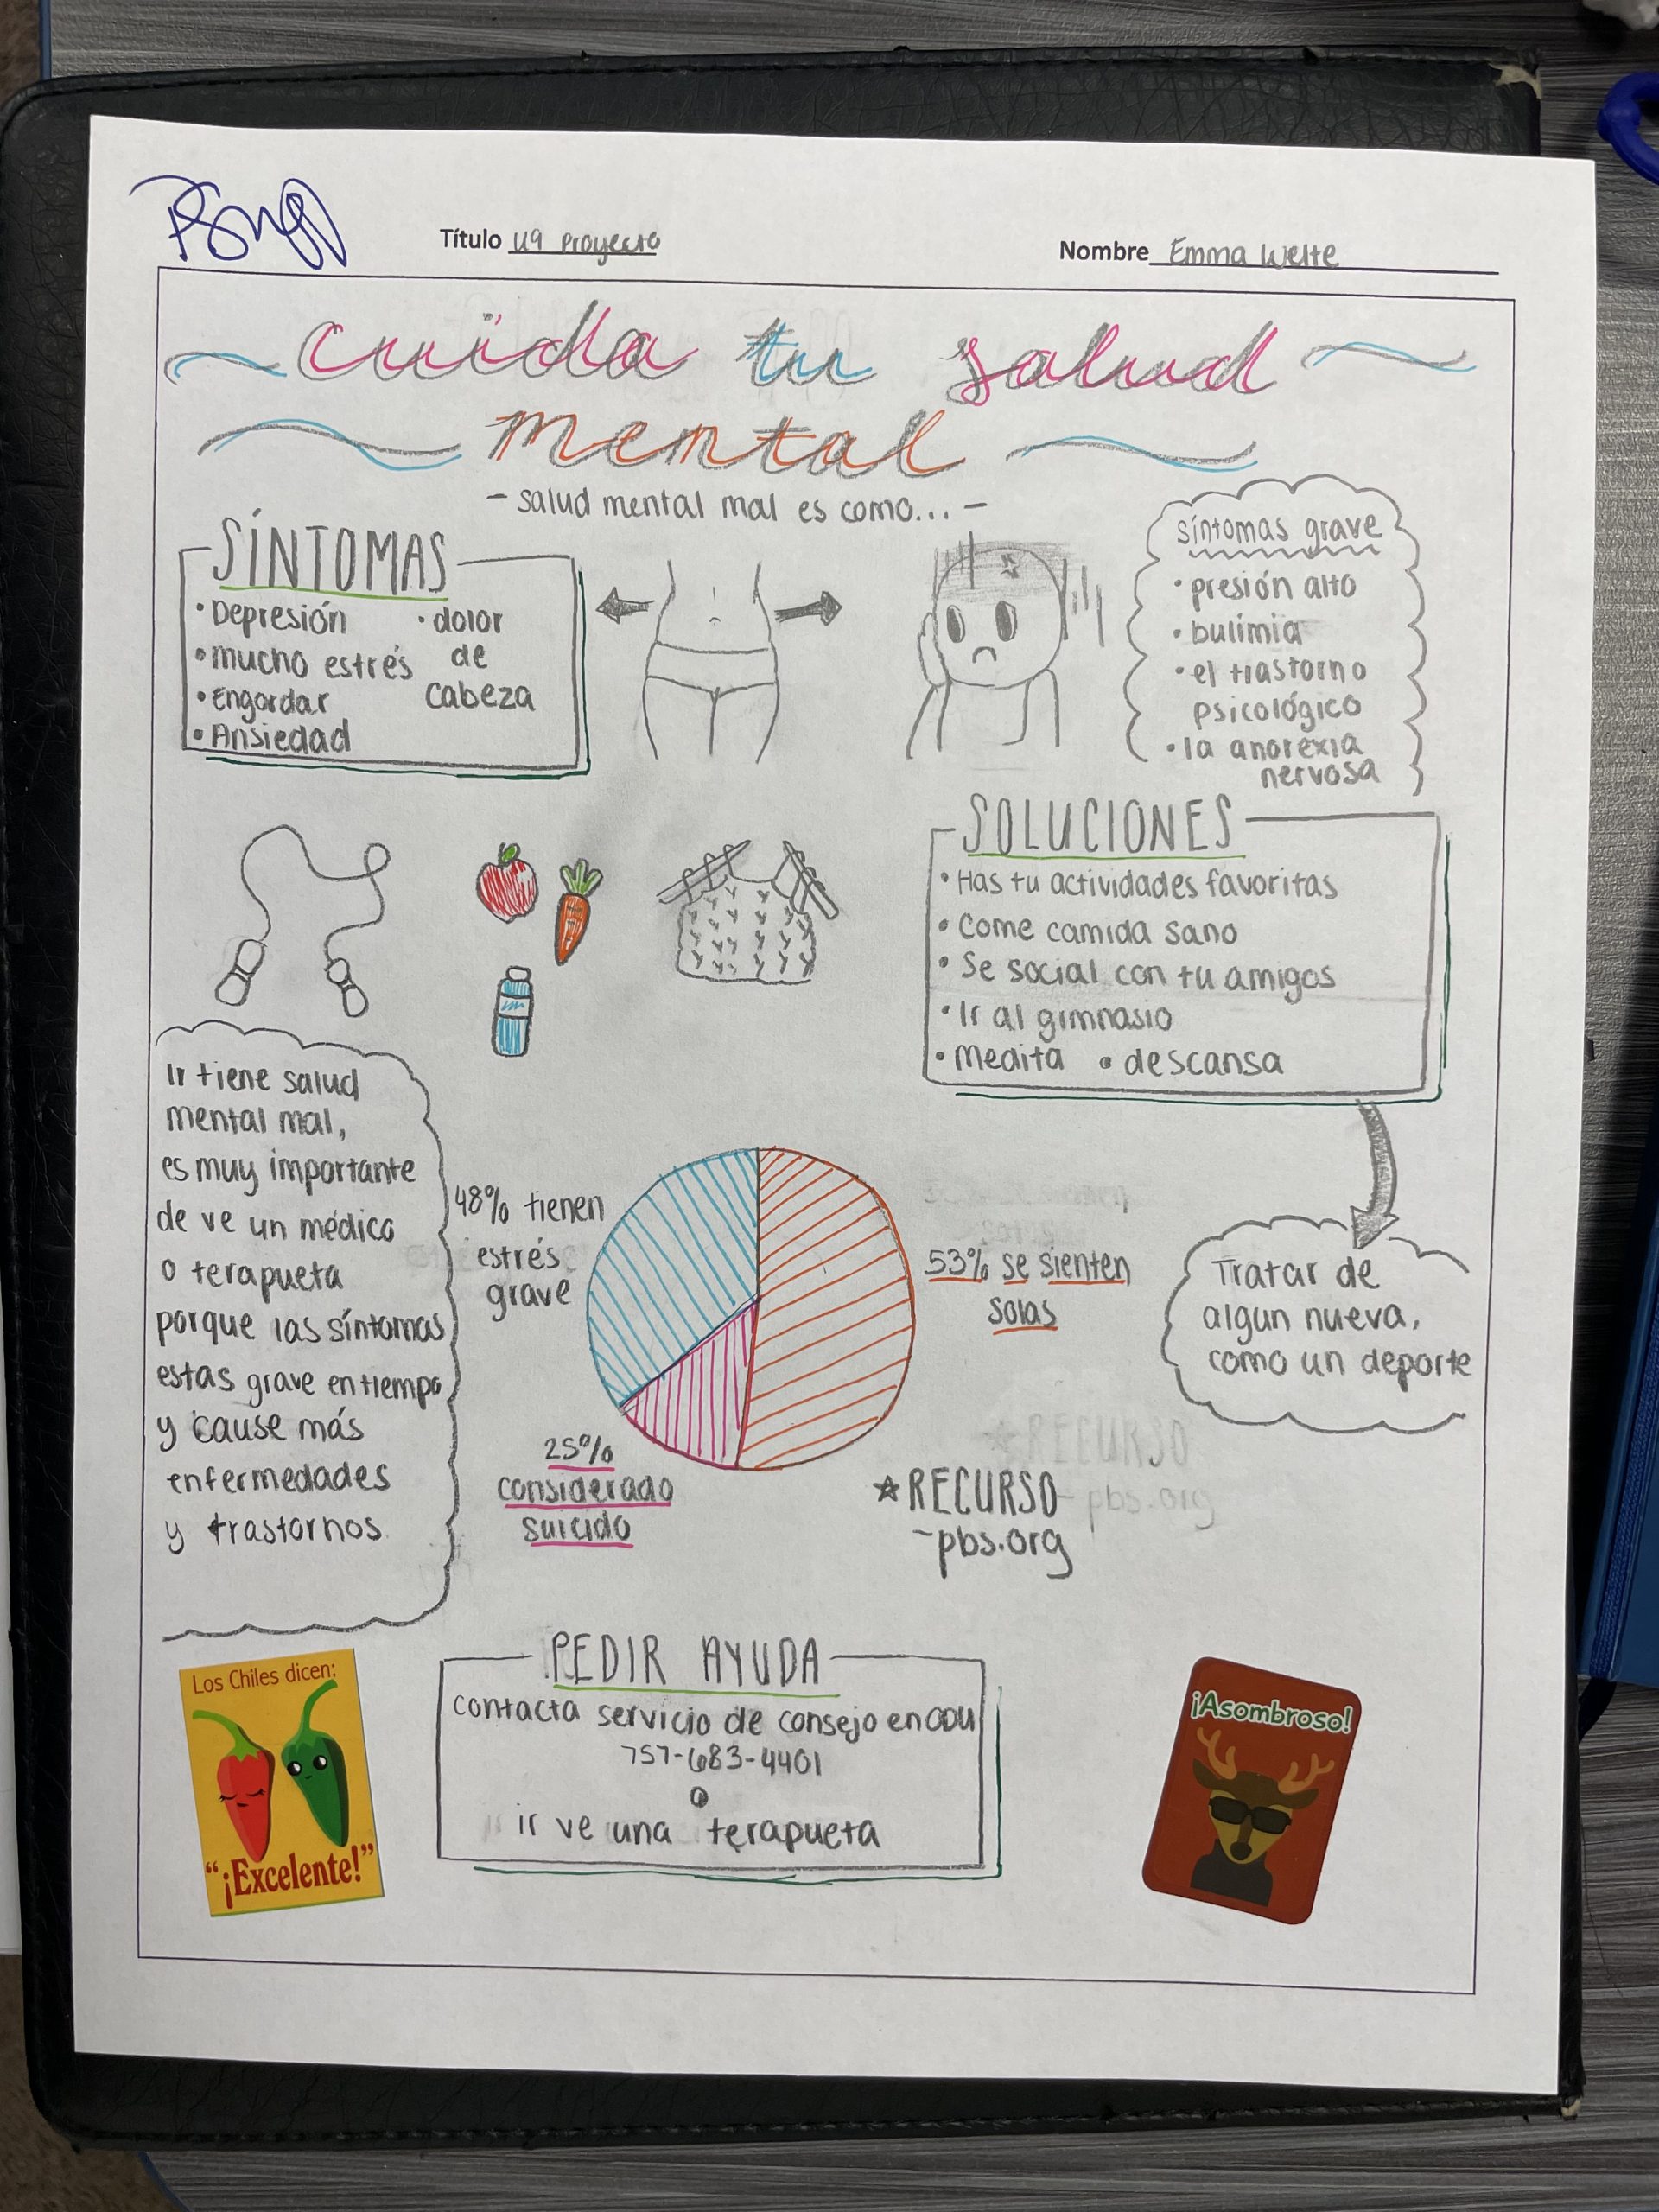 Título U9 Proyecto
Nombre Emma Welte
cuida tu salud
mental
- salud mental mal es como... -
SÍNTOMAS
• Depresión
• mucho estrés
• Engordar
• Ansiedad
• dolor
de
cabeza
síntomas grave
• presión alto
• bulimia
• el trastorno
psicológico
• la anorexia
nervosa
SOLUCIONES
• Has tu actividades favoritas
• Come camida sano
• Se social con tu amigos
• Ir al gimnasio
• Medita • descansa
Ir tiene salud
mental mal,
es muy importante
de ve un médico
o terapueta
porque las síntomas
estas grave en tiempo
y cause más
enfermedades
y trastornos.
48% tienen
estrés
grave
53% se sienten
solas
25%
considerado
suicido
Tratar de
algun nueva,
como un deporte
☆ RECURSO
~pbs.org
PEDIR AYUDA
contacta servicio de consejo en ODU
757-683-4401
o
ir ve una terapueta
Los Chiles dicen:
"¡Excelente!"
¡Asombroso!